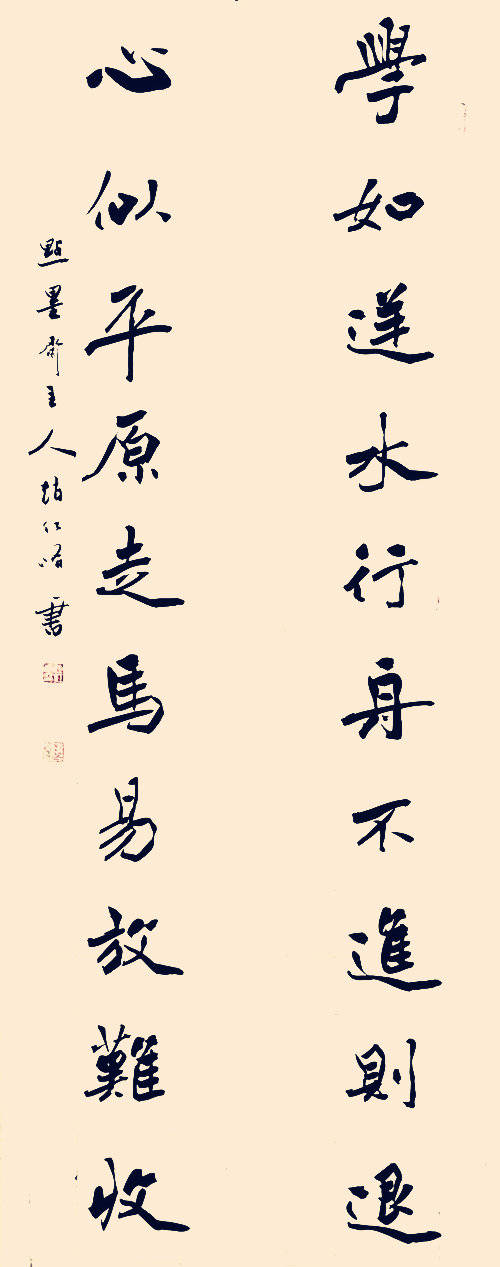 學如逆水行舟不進則退
心似平原走馬易放難收
點墨齋主人趙仁書